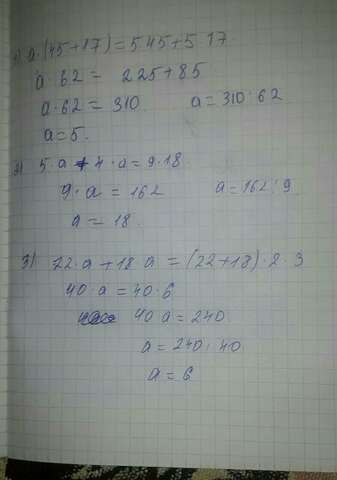 1) a·(45+17)=5·45+5·17.
a·62 = 225+85
a·62 = 310. a=310:62
a=5.
2) 5·a+4·a=9·18.
9·a=162 a=162:9
a=18.
3) 22·a+18·a=(22+18)·2·3
40·a=40·6
40a=240
a=240:40
a=6